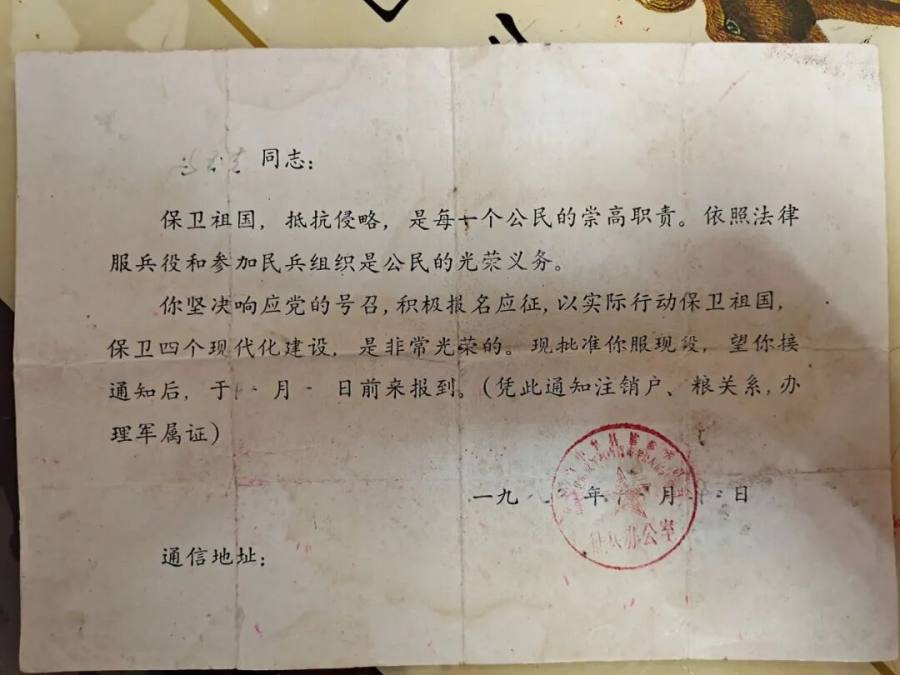 同志：
保卫祖国，抵抗侵略，是每一个公民的崇高职责。依照法律
服兵役和参加民兵组织是公民的光荣义务。
你坚决响应党的号召，积极报名应征，以实际行动保卫祖国，
保卫四个现代化建设，是非常光荣的。现批准你服现役，望你接
通知后，于 月 日前来报到。（凭此通知注销户、粮关系，办
理军属证）
一九 年 月 日
办公室
通信地址：